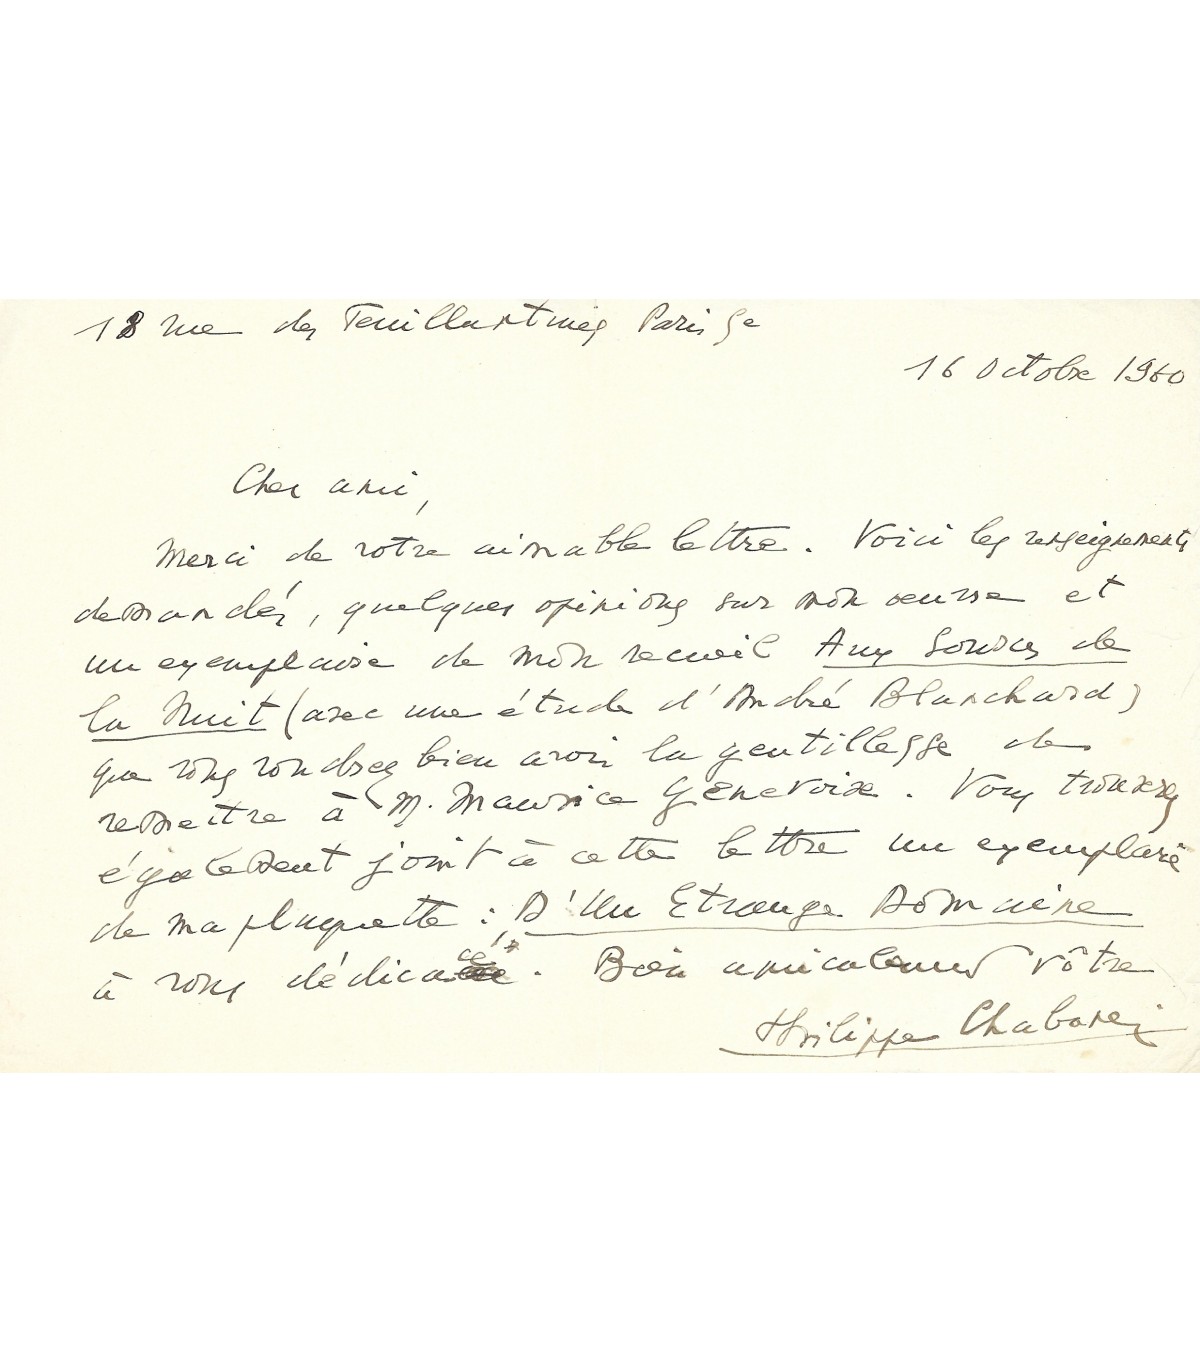 18 rue des Feuillantines Paris 5e
16 Octobre 1960
Cher ami,
Merci de votre aimable lettre. Voici les renseignements
demandés, quelques opinions sur mon oeuvre et
un exemplaire de mon recueil Aux Sources de
la Nuit (avec une étude d'André Blanchard)
que vous voudrez bien avoir la gentillesse de
remettre à M. Maurice Genevoix. Vous trouverez
également joint à cette lettre un exemplaire
de ma plaquette : D'Un Etrange Domaine
à vous dédicacé. Bien amicalement vôtre
Philippe Chabaneix